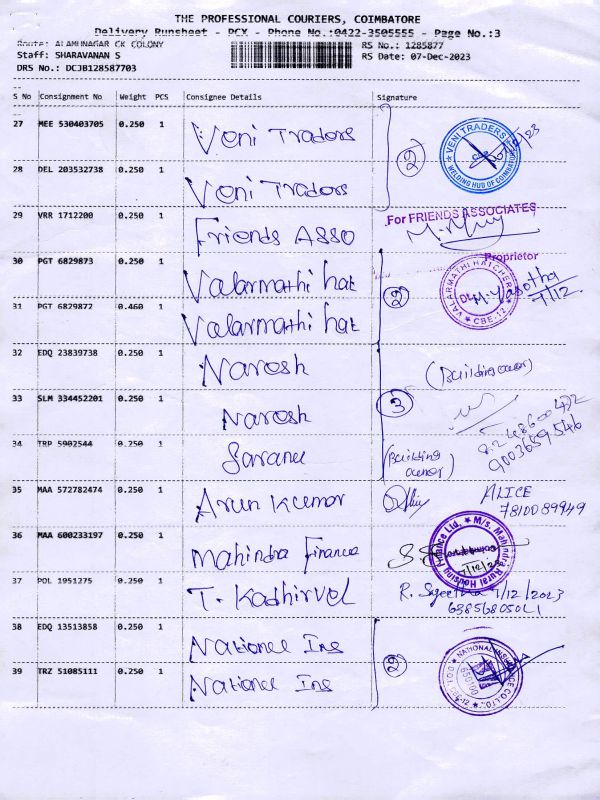 THE PROFESSIONAL COURIERS, COIMBATORE
Delivery Runsheet - PCX - Phone No.:0422-3505555 - Page No.:3
Route: ALAMUNAGAR CK COLONY
RS No.: 1285877
Staff: SHARAVANAN S
RS Date: 07-Dec-2023
DRS No.: DCJB128587703
S No Consignment No Weight PCS Consignee Details Signature
27 MEE 530403705 0.250 1 Veni Traders
② VENI TRADERS
WELDING HUB OF COIMBATORE
28 DEL 203532738 0.250 1 Veni Traders
29 VRR 1712200 0.250 1 Friends ASSO
For FRIENDS ASSOCIATES
Proprietor
30 PGT 6829873 0.250 1 Valarmathi hat
② VALARMATHI HATCHERY
CBE-12
M. Yasotha
7/12.
31 PGT 6829872 0.460 1 Valarmathi hat
32 EDQ 23839738 0.250 1 Narosh
(Building owner)
33 SLM 334452201 0.250 1 Narosh
③
9003659546
34 TRP 5902544 0.250 1 Saranu
(Building owner)
35 MAA 572782474 0.250 1 Arun Kumar
ALICE
7810089949
36 MAA 600233197 0.250 1 Mahindra Finance
M/s. Mahindra Rural Housing Finance Ltd.
7/12/23
37 POL 1951275 0.250 1 T. Kadhirvel
7/12/2023
38 EDQ 13513858 0.250 1 National Ins
② NATIONAL INSURANCE CO.LTD.
39 TRZ 51085111 0.250 1 National Ins